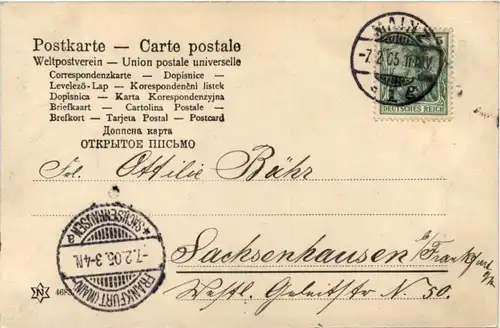 Postkarte — Carte postale
Weltpostverein — Union postale universelle
Correspondenzkarte — Dopisnice —
Levelező-Lap — Korespondenční listek
Dopisnica — Karta Korespondenzyjna
Briefkaart — Cartolina Postale —
Brefkort — Tarjeta Postal — Postcard
Доппена карта
ОТКРЫТОЕ ПИСЬМО
MAINZ
-7.2.05
DEUTSCHES REICH
Frl. Ottilie Bähr
SACHSENHAUSEN
-7.2.05. 3-4N.
FRANKFURT (MAIN)
Sachsenhausen b/Frankfurt a/M.
N 50.